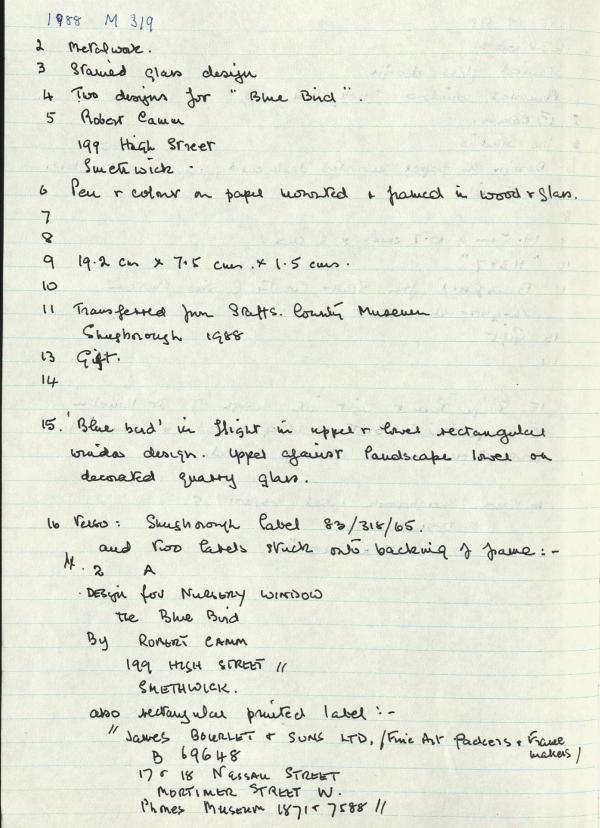 1988 M 319
2 Metalwork.
3 Stained glass design
4 Two designs for "Blue Bird".
5 Robert Camm
199 High Street
Smethwick.
6 Pen & colour on paper mounted & framed in wood & glass.
7
8
9 19.2 cm x 7.5 cms. x 1.5 cms.
10
11 Transferred from Staffs. County Museum
Shugborough 1988
13 Gift.
14
15. 'Blue bird' in flight in upper & lower rectangular
window design. Upper against landscape lower on
decorated quarry glass.
16 Verso: Shugborough label 83/318/65.
and two labels stuck onto backing of frame:-
2 A
Design for NURSERY WINDOW
the Blue Bird
By ROBERT CAMM
199 HIGH STREET //
SMETHWICK.
also rectangular printed label:-
"James BOURLET & SONS LTD, /Fine Art Packers & Frame
makers/
B 69648
17 & 18 NASSAU STREET
MORTIMER STREET W.
Phones MUSEUM 1871 & 7588 //